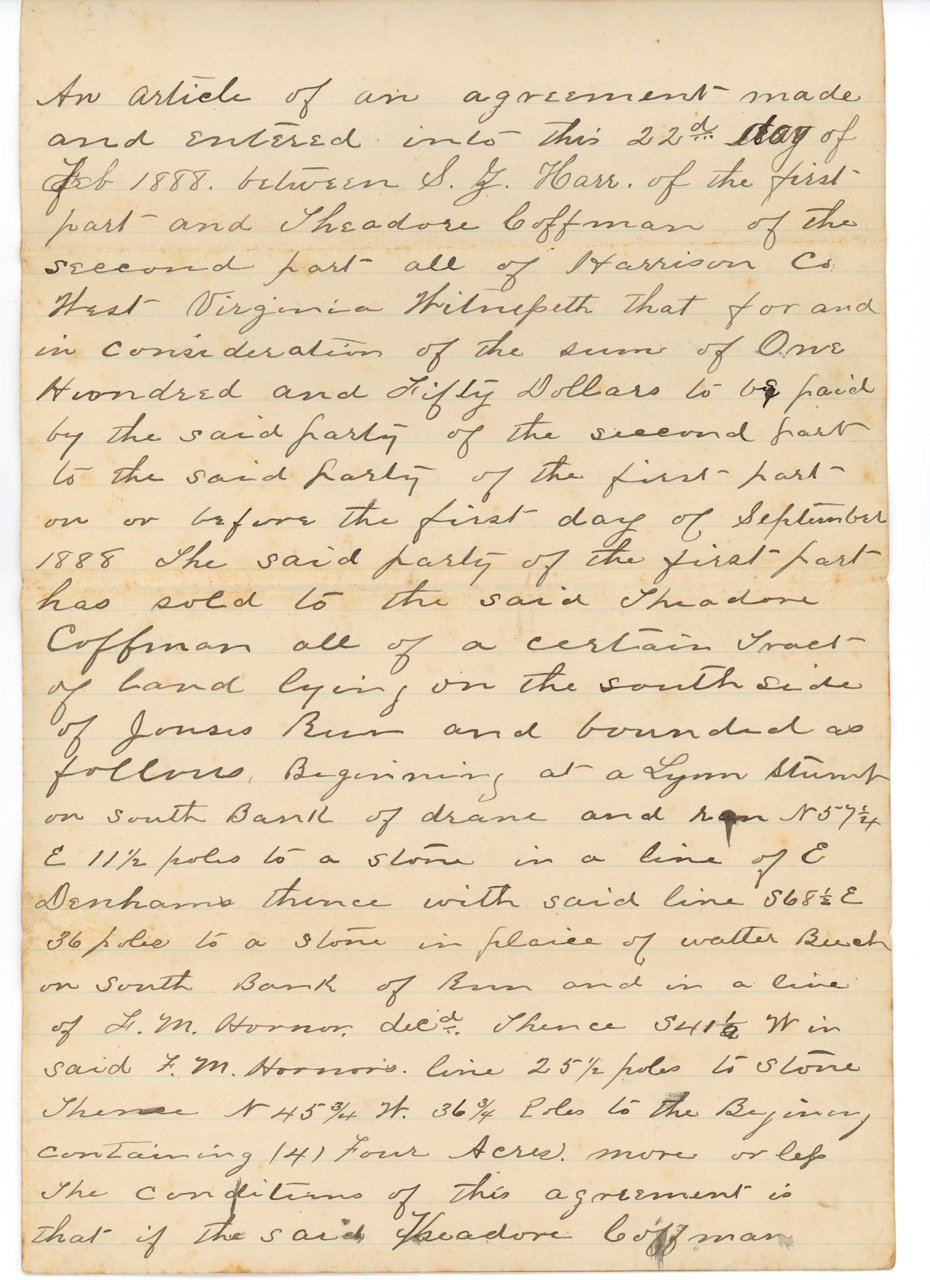 An article of an agreement made
and entered into this 22d day of
Feb 1888. between S. Harr. of the first
part and Theadore Coffman of the
seecond part all of Harrison Co
West Virginia Witnesseth that for and
in consideration of the sum of One
Hundred and Fifty Dollars to be paid
by the said party of the seecond part
to the said party of the first part
on or before the first day of September
1888 The said party of the first part
has sold to the said Theadore
Coffman all of a certain Tract
of land lying on the south side
of Jonses Run and bounded as
follows, Beginning at a Lynn Stump
on south Bank of drane and ran N 57
E 11 1/2 poles to a stone in a line of E
Denhams thence with said line S 68 1/2 E
36 poles to a stone in plaice of watter Beech
on south Bank of Run and in a line
of F. M. Hornor. decd. Thence S 41 1/2 W in
said F. M. Hornors. line 25 1/2 poles to stone
Thense N 45 3/4 W. 36 3/4 Poles to the Begining
containing (4) Four Acres. more or less
The conditions of this agreement is
that if the said Theadore Coffman